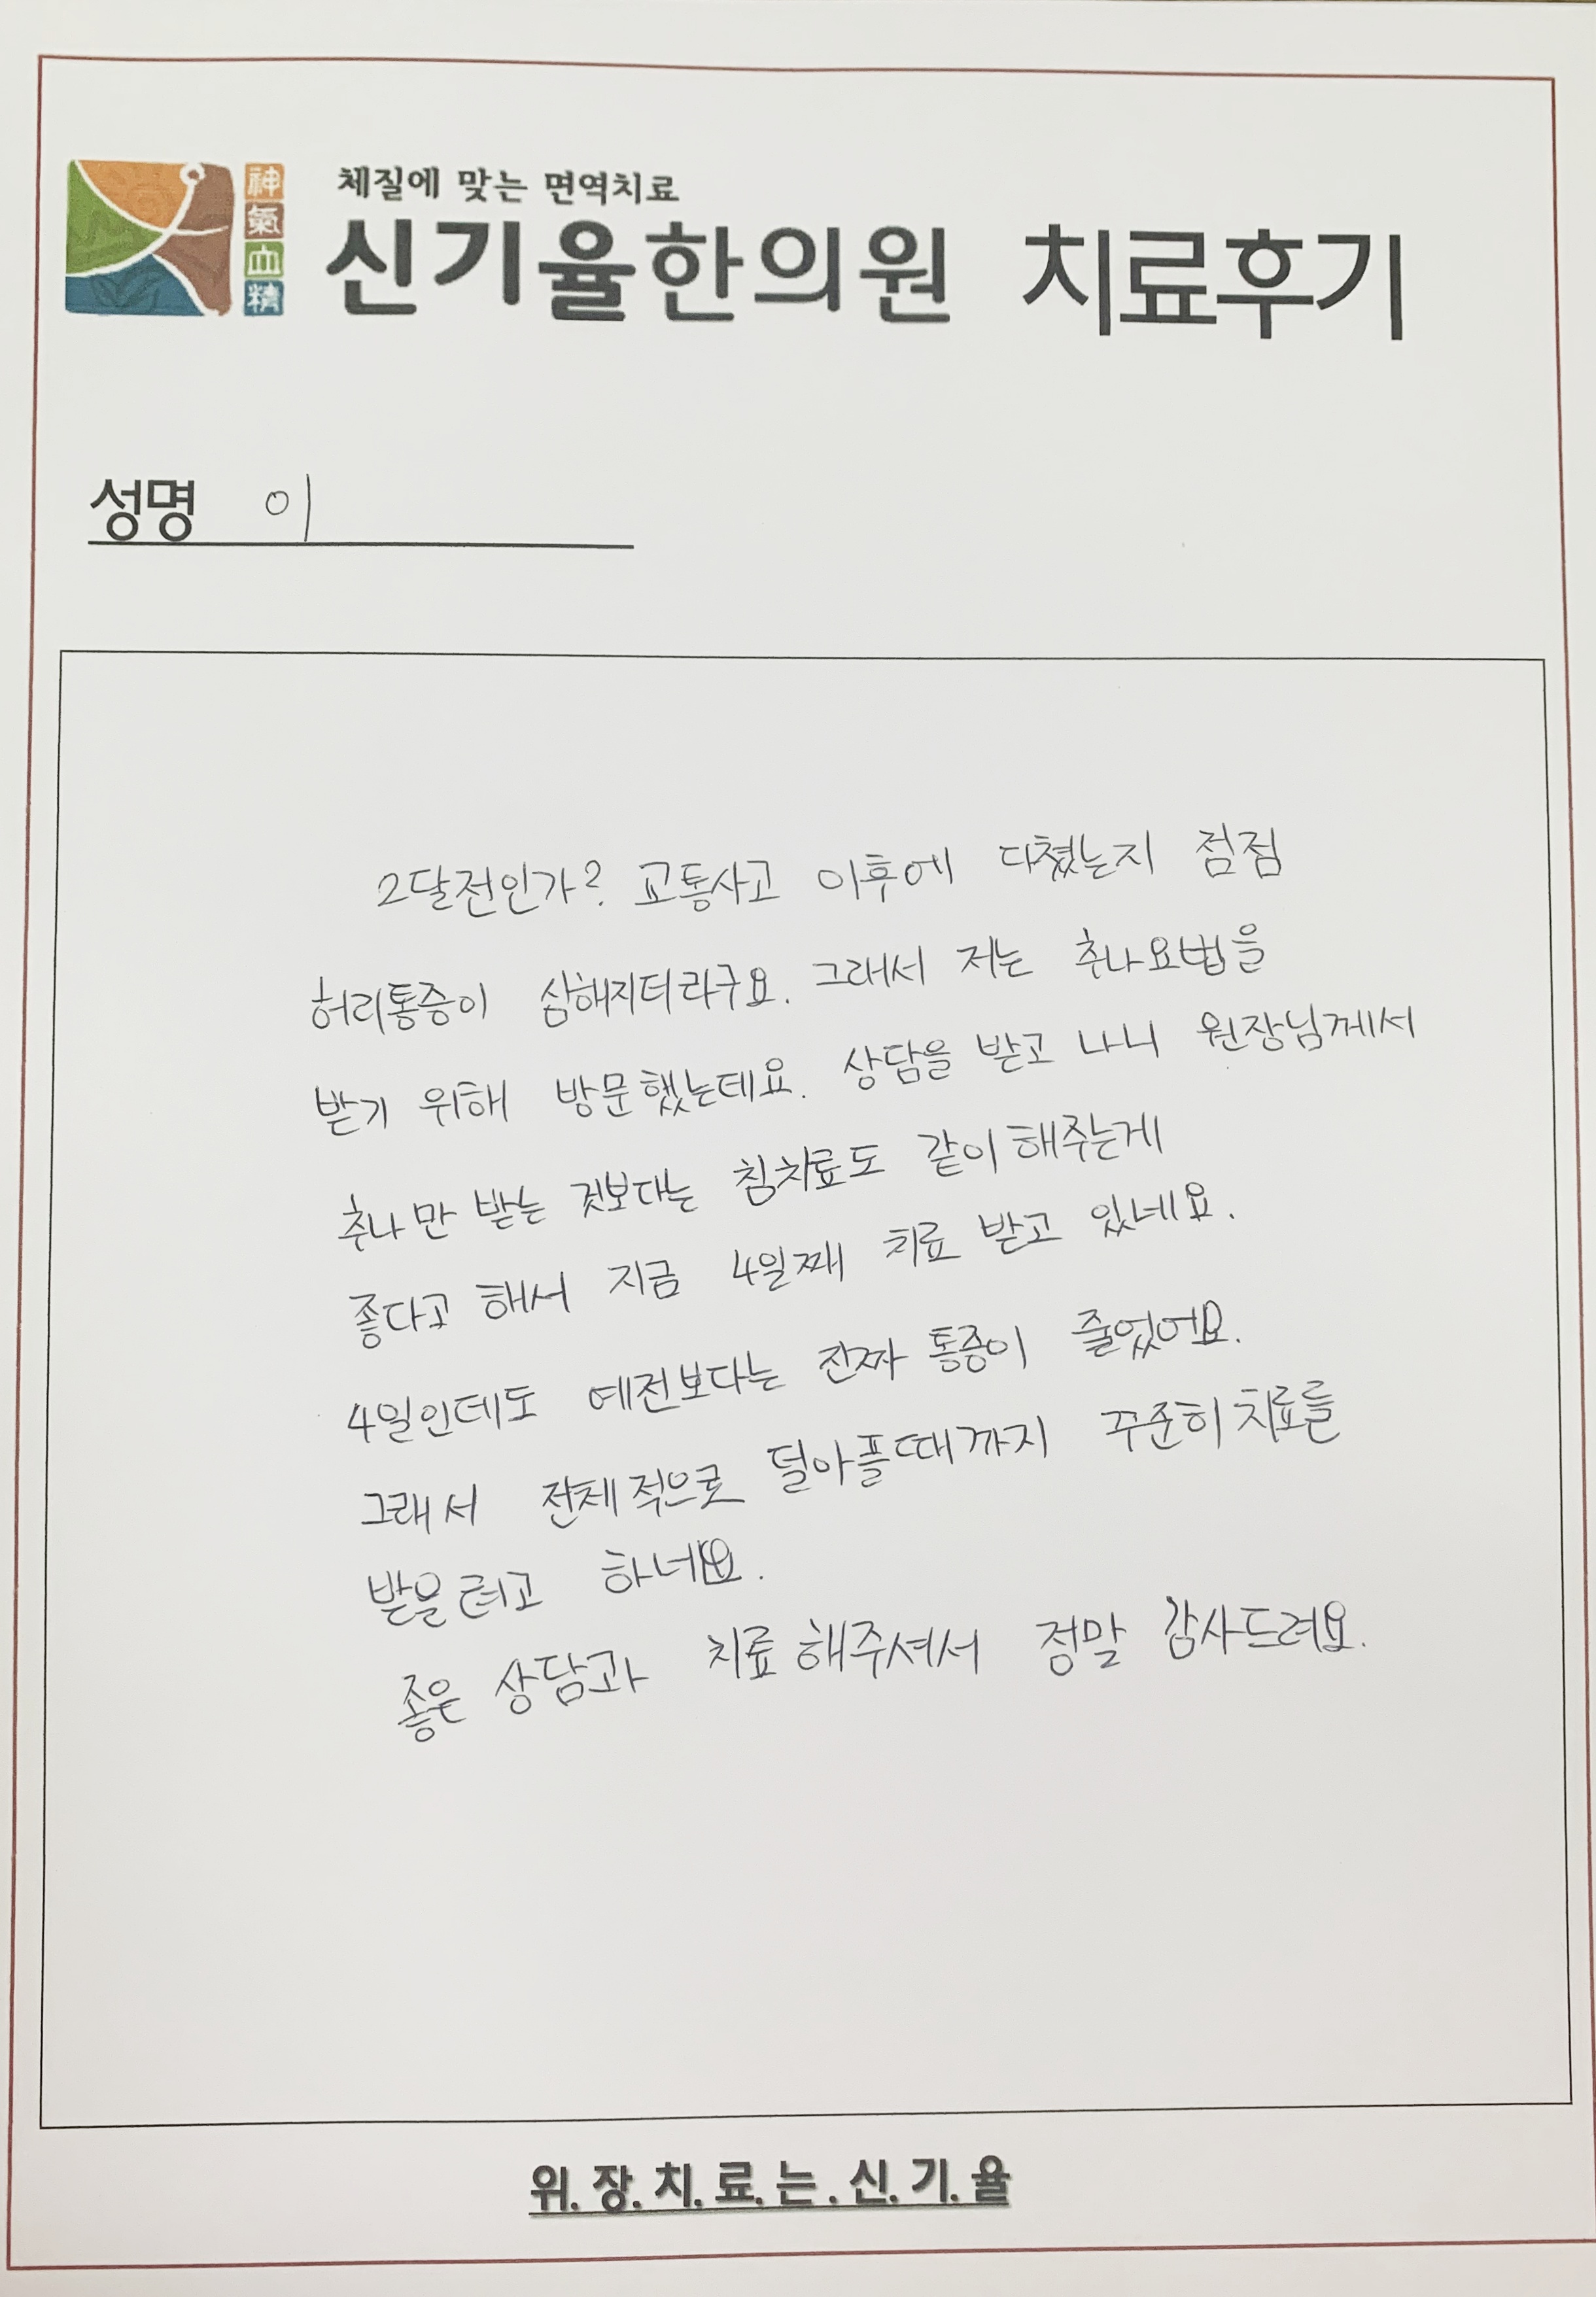 神氣血精
체질에 맞는 면역치료
신기율한의원 치료후기
성명 이
2달전인가? 교통사고 이후에 다쳤는지 점점
허리통증이 심해지더라구요. 그래서 저는 추나요법을
받기 위해 방문했는데요. 상담을 받고 나니 원장님께서
추나만 받는 것보다는 침치료도 같이 해주는게
좋다고 해서 지금 4일째 치료 받고 있네요.
4일인데도 예전보다는 진짜 통증이 줄었어요.
그래서 전체적으로 덜아플때까지 꾸준히 치료를
받을려고 하네요.
좋은 상담과 치료 해주셔서 정말 감사드려요.
위.장.치.료.는.신.기.율